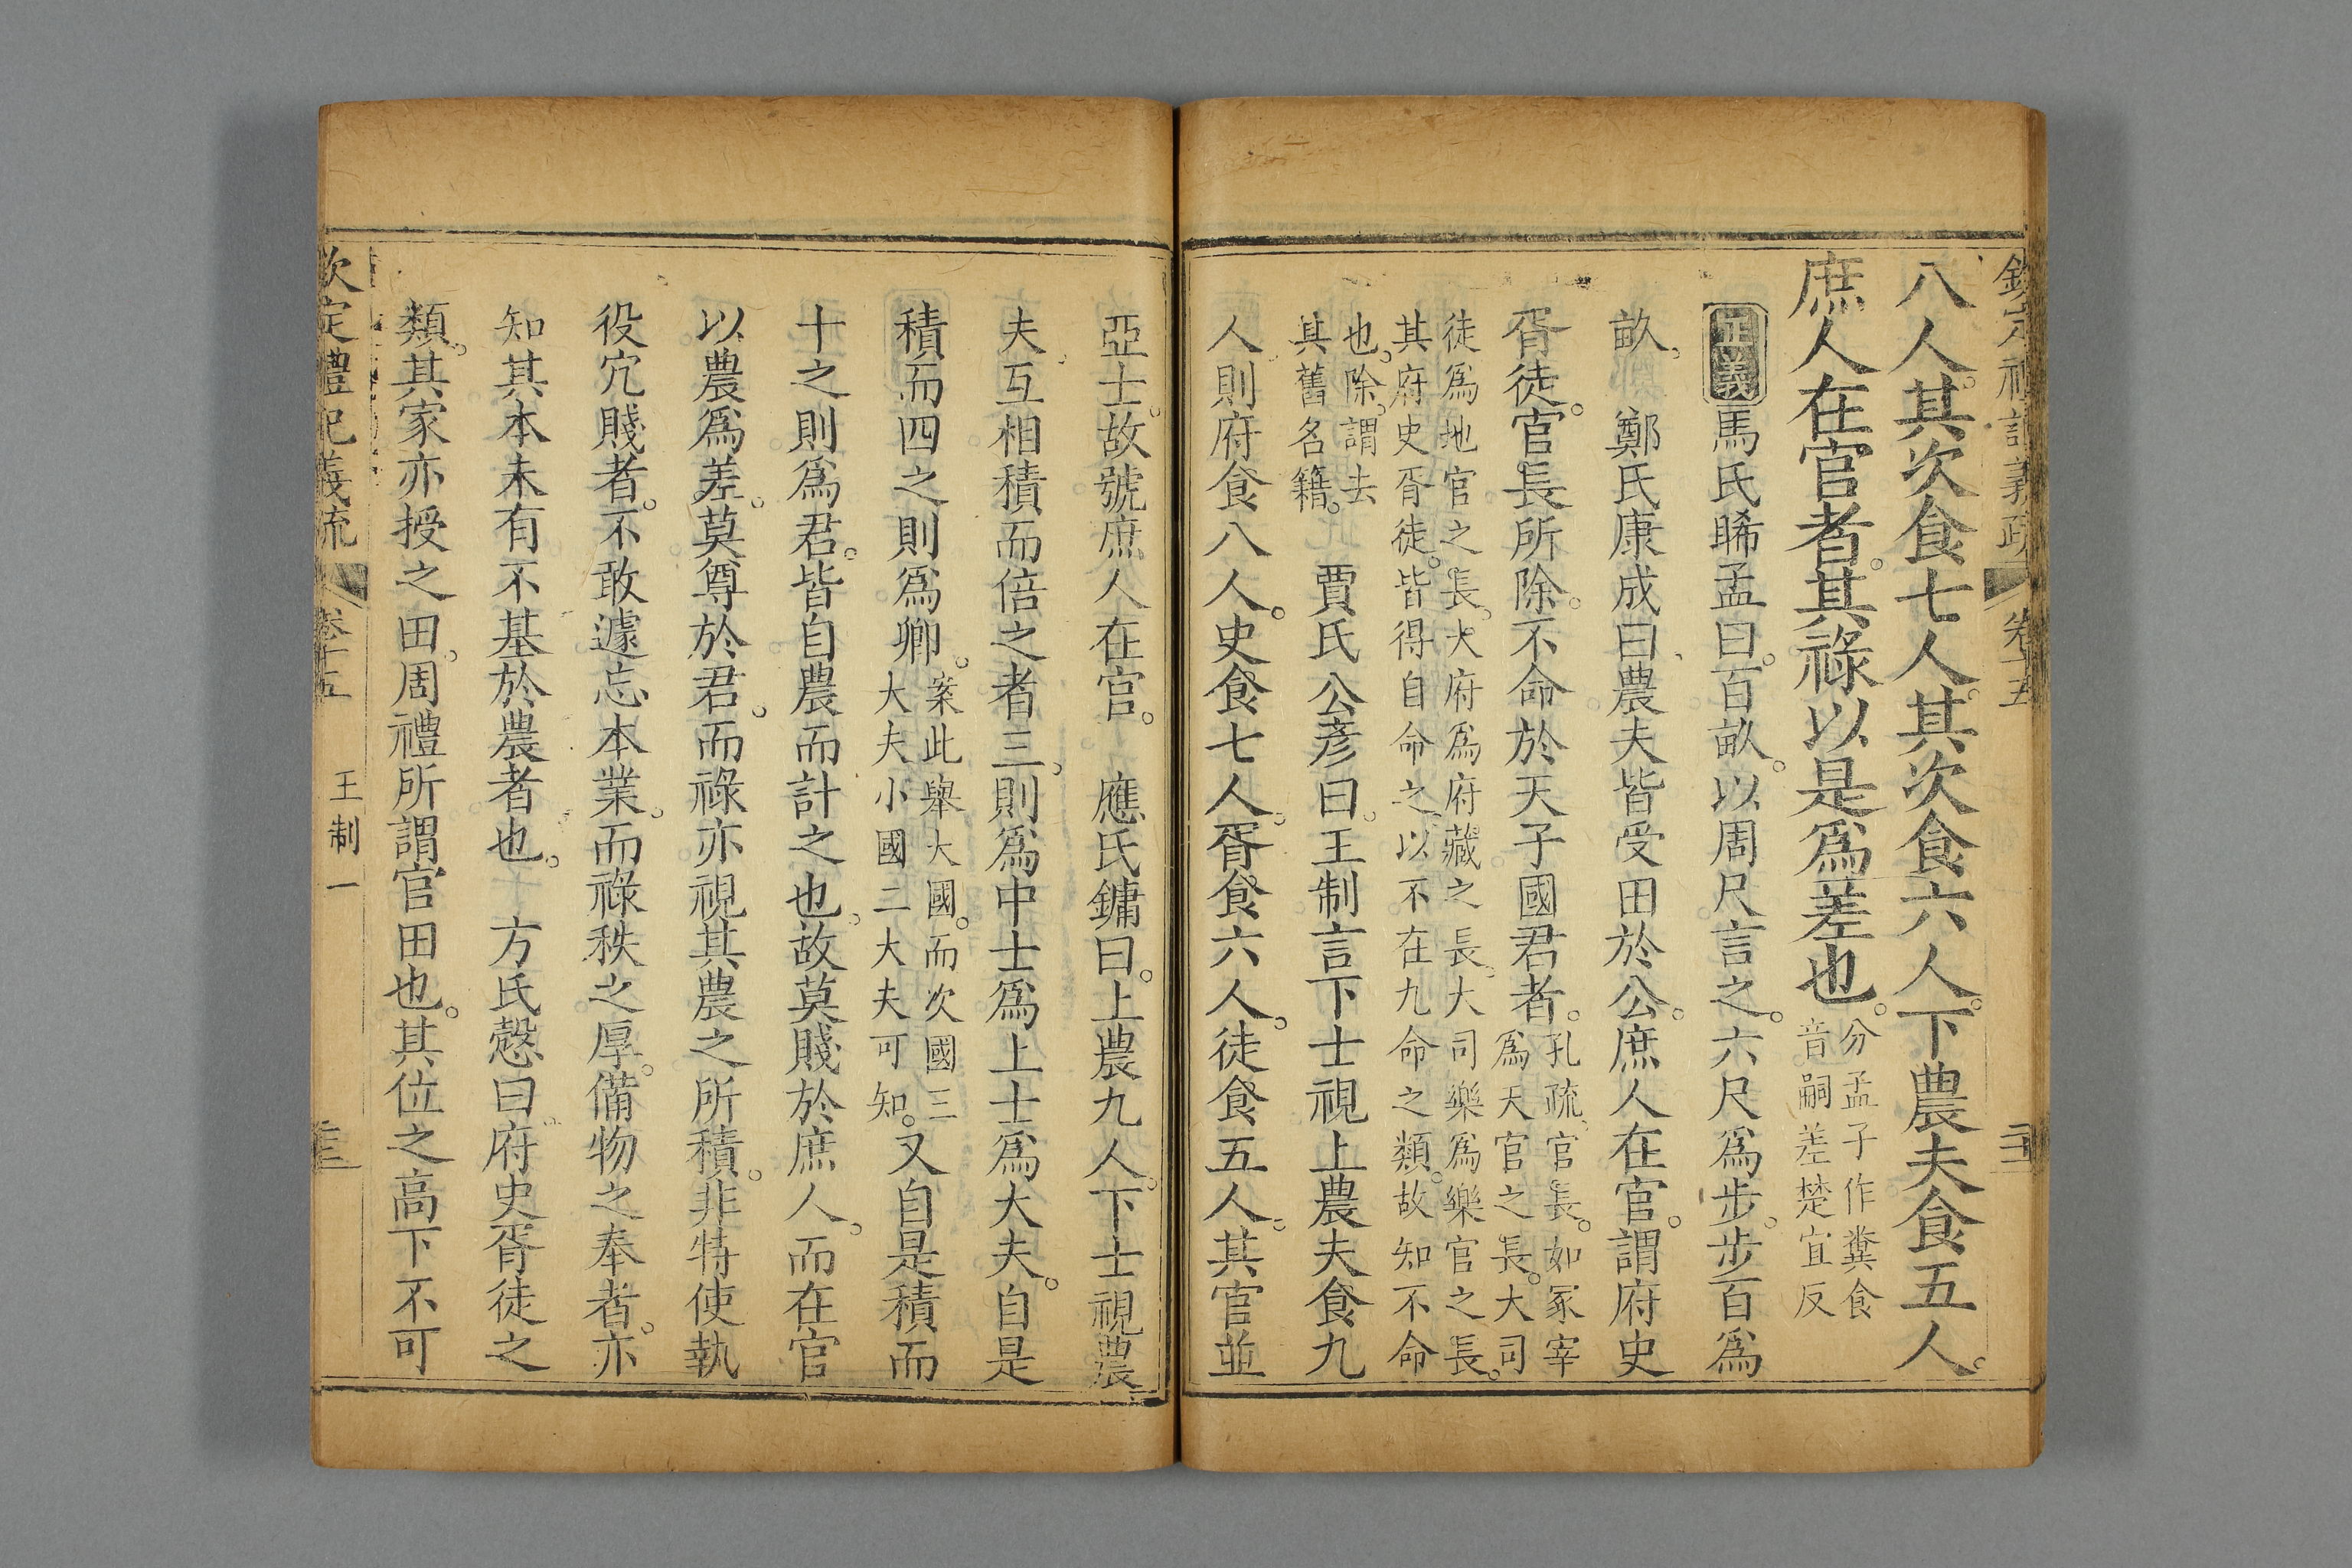 欽定禮記義疏 卷十五
八人。其次食七人。其次食六人。下農夫食五人。
庶人在官者。其祿以是爲差也。分孟子作糞食
音嗣差楚宜反
正義馬氏晞孟曰。百畝。以周尺言之。六尺爲步。步百爲
畝。 鄭氏康成曰、農夫皆受田於公。庶人在官。謂府史
胥徒。官長所除。不命於天子國君者。孔疏、官長。如冢宰
爲天官之長。大司
徒爲地官之長。大府爲府藏之長。大司樂爲樂官之長。
其府史胥徒。皆得自命之。以不在九命之類。故知不命
也。除。謂去
其舊名籍。 賈氏公彥曰。王制言下士視上農夫食九
人。則府食八人。史食七人。胥食六人。徒食五人。其官並
亞士。故號庶人在官。 應氏鏞曰。上農九人。下士視農
夫。互相積而倍之者三。則爲中士爲上士爲大夫。自是
積而四之則爲卿。案此舉大國。而次國三
大夫小國二大夫可知。又自是積而
十之則爲君。皆自農而計之也。故莫賤於庶人。而在官
以農爲差。莫尊於君。而祿亦視其農之所積。非特使執
役宂賤者。不敢遽忘本業。而祿秩之厚。備物之奉者。亦
知其本未有不基於農者也。 方氏愨曰。府史胥徒之
類。其家亦授之田。周禮所謂官田也。其位之高下不可
欽定禮記義疏 卷十五 王制一